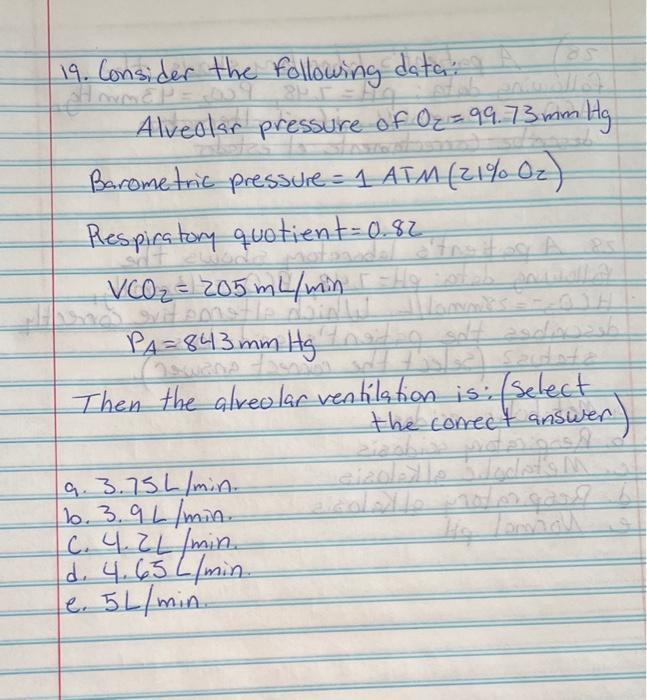 19. Consider the following data:
Alveolar pressure of O2 = 99.73 mm Hg
Barometric pressure = 1 ATM (21% O2)
Respiratory quotient = 0.82
VCO2 = 205 mL/min
PA = 843 mm Hg
Then the alveolar ventilation is: (Select
the correct answer)
a. 3.75 L/min.
b. 3.9 L/min.
c. 4.2 L/min.
d. 4.65 L/min.
e. 5 L/min.